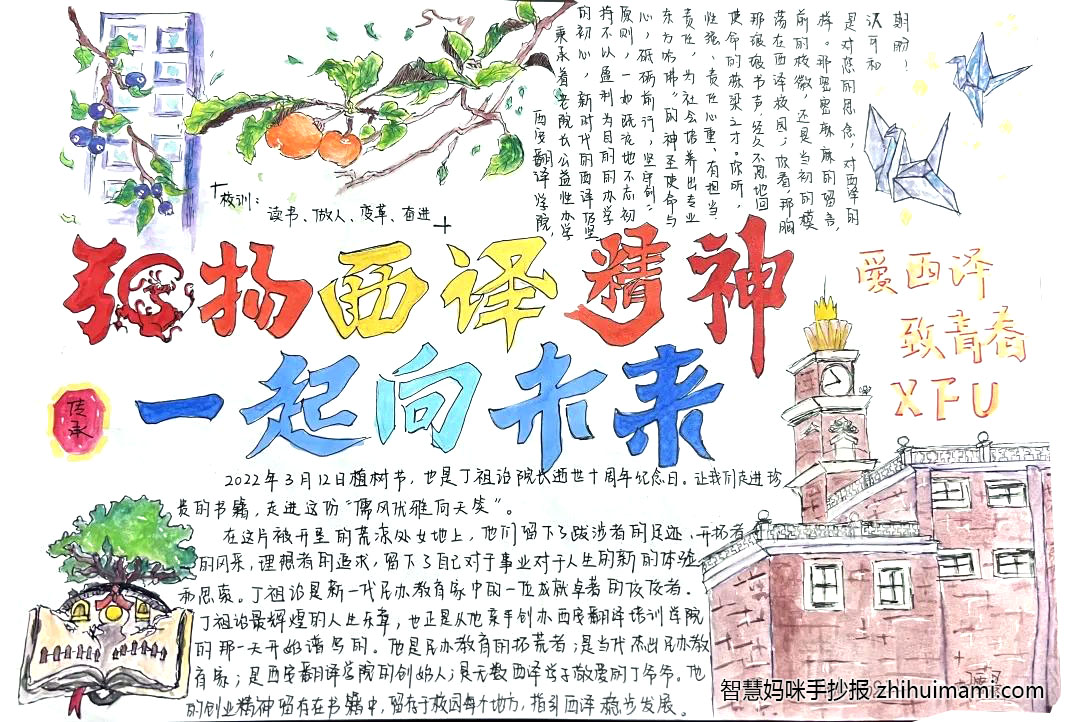 校训:
读书、做人、变革、奋进
西安翻译学院,
秉承着老院长公益性办学
的初心,新时代的西译仍坚
持不以盈利为目的的办学
原则,一如既往地不忘初
心,砥砺前行,坚守创"
东方哈佛"的神圣使命与
责任,为社会培养出专业
性强、责任心重、有担当
使命的栋梁之才。你听,
那琅琅书声,经久不息地回
荡在西译校园;你看,那胸
前的校徽,还是当初的模
样。那密密麻麻的留言,
是对您的思念,对西译的
认可和
期盼!
弘扬西译精神
一起向未来
爱西译
致青春
XFU
传承
2022年3月12日植树节,也是丁祖诒院长逝世十周年纪念日。让我们走进珍
贵的书籍,走进这份"儒风优雅向天笑"。
在这片被开垦的荒凉处女地上,他们留下了跋涉者的足迹、开拓者
的风采,理想者的追求,留下了自己对于事业对于人生的新的体验
和思索。丁祖诒是新一代民办教育家中的一位成就卓著的佼佼者。
丁祖诒最辉煌的人生乐章,也正是从他亲手创办西安翻译培训学院
的那一天开始谱写的。他是民办教育的拓荒者;是当代杰出民办教
育家;是西安翻译学院的创始人;是无数西译学子敬爱的丁爷爷。他
的创业精神留存在书籍中,留存于校园每个地方,指引西译稳步发展。
智慧妈咪手抄报 zhihuimami.com